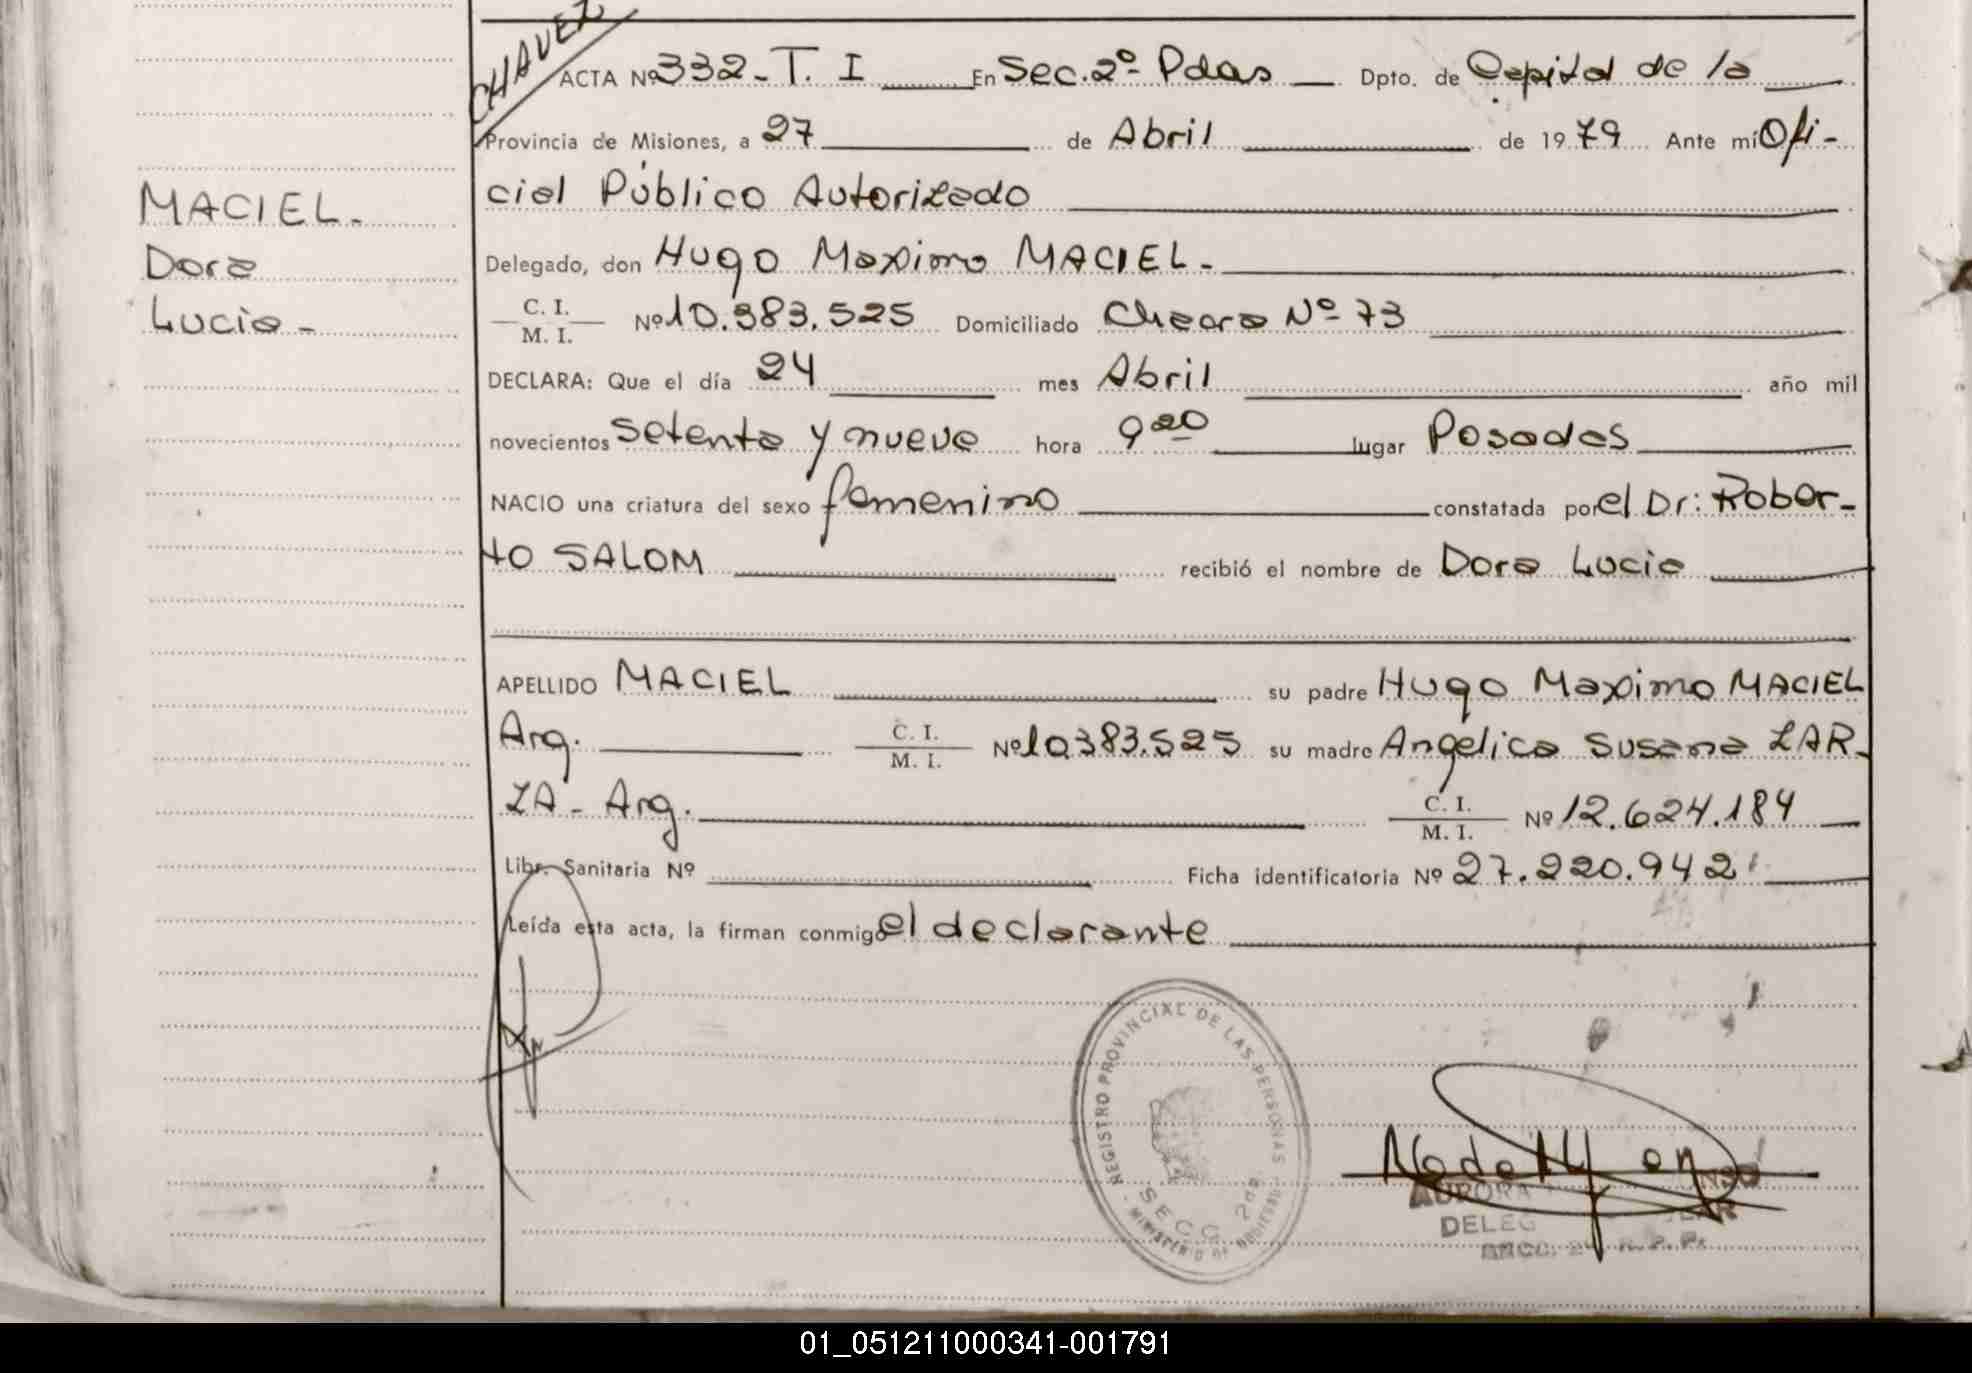 CHAVEZ
ACTA Nº 332 - T. I En Sec. 2º Pdas Dpto. de Capital de la
Provincia de Misiones, a 27 de Abril de 1979 Ante mí Ofi-
cial Público Autorizado
MACIEL.
Dora
Lucia -
Delegado, don Hugo Maximo MACIEL -
C. I.
M. I. Nº 10.383.525 Domiciliado Chacra Nº 73
DECLARA: Que el día 24 mes Abril año mil
novecientos setenta y nueve hora 9 20 lugar Posadas
NACIO una criatura del sexo femenino constatada por el Dr: Rober-
to SALOM recibió el nombre de Dora Lucia
APELLIDO MACIEL su padre Hugo Maximo MACIEL
Arg. C. I. M. I. Nº 10.383.525 su madre Angelica Susana ZAR-
ZA - Arg. C. I. M. I. Nº 12.624.184
Libr. Sanitaria Nº Ficha identificatoria Nº 27.220.942
Leída esta acta, la firman conmigo el declarante
REGISTRO PROVINCIAL DE LAS PERSONAS
MINISTERIO DE GOBIERNO
SECC. 2da
AURORA
DELEG
SECC. 2 R. P. P.
01_051211000341-001791